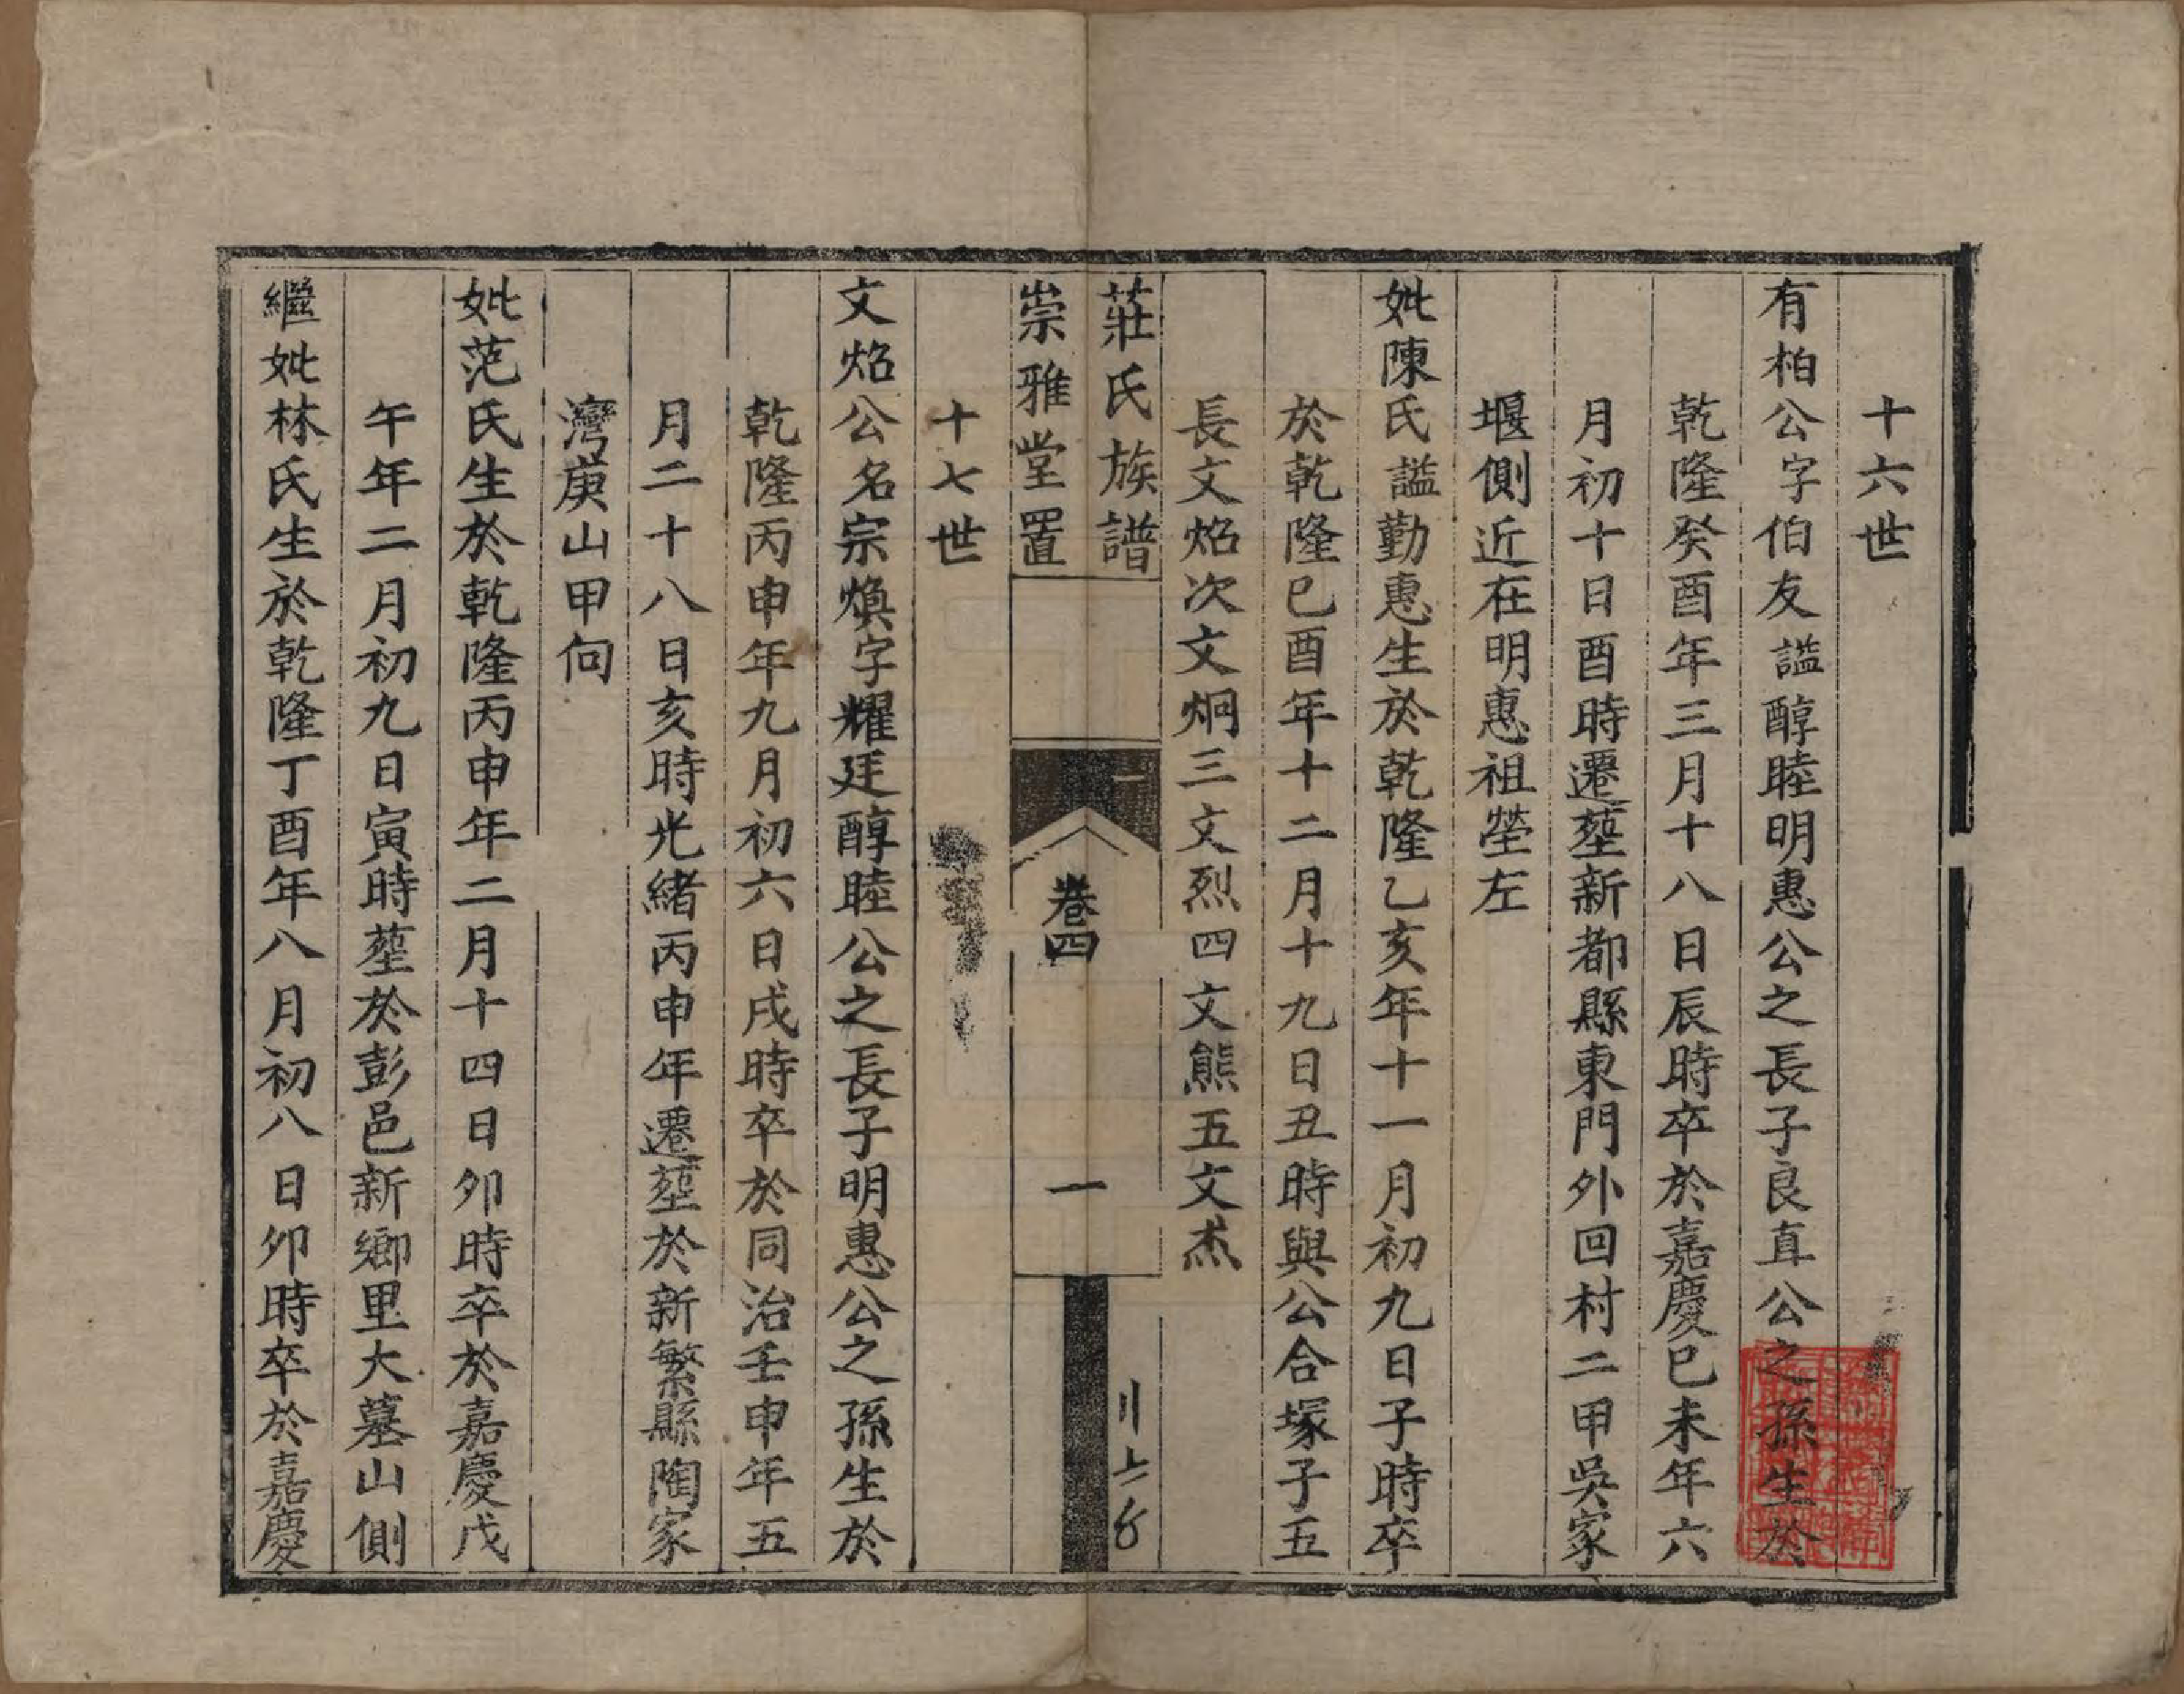 十六世
有柏公字伯友謚醇睦明惠公之長子良直公之孫生於
乾隆癸酉年三月十八日辰時卒於嘉慶巳未年六
月初十日酉時遷塟新都縣東門外回村二甲吳家
堰側近在明惠祖塋左
妣陳氏謚勤惠生於乾隆乙亥年十一月初九日子時卒
於乾隆巳酉年十二月十九日丑時與公合塚子五
長文焰次文炯三文烈四文熊五文杰
莊氏族譜
崇雅堂置
卷四
一
十七世
文焰公名宗煥字耀廷醇睦公之長子明惠公之孫生於
乾隆丙申年九月初六日戌時卒於同治壬申年五
月二十八日亥時光緒丙申年遷塟於新繁縣陶家
灣庚山甲向
妣范氏生於乾隆丙申年二月十四日卯時卒於嘉慶戊
午年二月初九日寅時塟於彭邑新鄉里大墓山側
繼妣林氏生於乾隆丁酉年八月初八日卯時卒於嘉慶